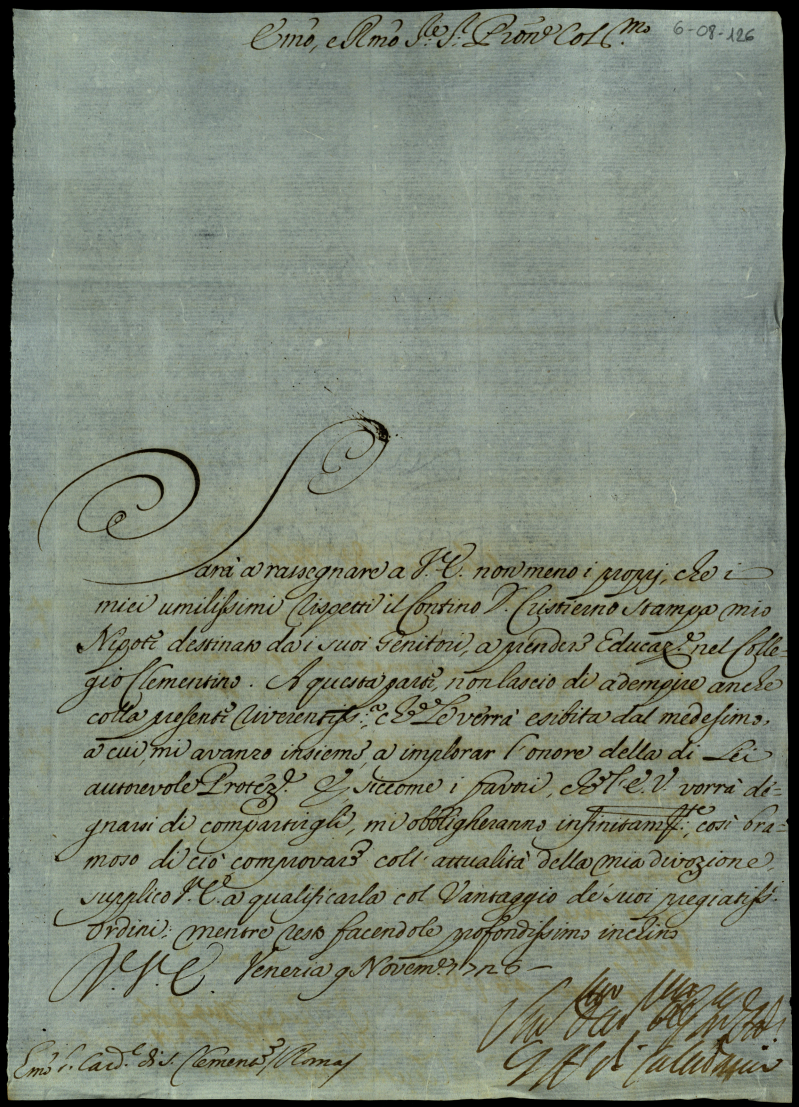 Emo, e Rmo Sre Sr. Pron Col.mo
6-08-126
Sarà a rassegnare a V. E. non meno i proprj, che i
miei umilissimi rispetti il Contino D. Cristierno Stampa mio
Nipote destinato da i suoi Genitori, a prender Educaz.e nel Colle=
gio Clementino. A questa parte, non lascio di adempire anche
colla presente riverentiss.a che Le verrà esibita dal medesimo,
a cui, mi avanzo insieme, a implorar l'onore della di Lei
autorevole Protez.e Et, siccome i favori, che l'E. V. vorrà de=
gnarsi di compartirgli, mi obbligheranno infinitam.te, così bra=
moso di ciò comprovare coll'attualità della mia divozione,
supplico V. E. a qualificarla col Vantaggio de' suoi pregiatiss.
ordini; mentre resto facendole profondissimo inchino
D. V. E. Venezia 9 Novem.e 1726
Emo S. Card.e di S. Clemente / Roma /